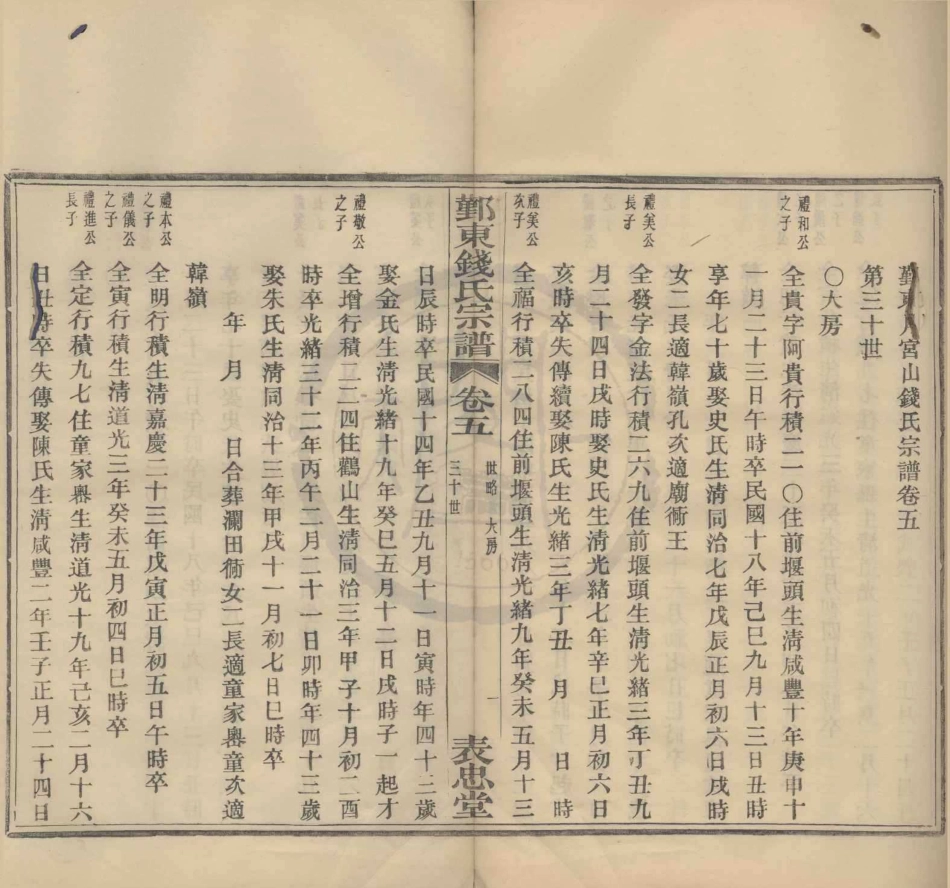 鄞東月宮山錢氏宗譜卷五
第三十世
〇大房
禮和公之子
全貴字阿貴行積二一〇住前堰頭生淸咸豐十年庚申十
一月二十三日午時卒民國十八年己巳九月十三日丑時
享年七十歲娶史氏生淸同治七年戊辰正月初六日戌時
女二長適韓嶺孔次適廟衕王
禮美公長子
全發字金法行積二六九住前堰頭生淸光緖三年丁丑九
月二十四日戌時娶史氏生淸光緖七年辛巳正月初六日
亥時卒失傳續娶陳氏生光緖三年丁丑 月 日 時
禮美公次子
全福行積二八四住前堰頭生淸光緖九年癸未五月十三
鄞東錢氏宗譜 卷五 世略 大房 三十世 一 表忠堂
日辰時卒民國十四年乙丑九月十一日寅時年四十三歲
娶金氏生淸光緖十九年癸巳五月十二日戌時子一起才
禮敬公之子
全增行積二三四住鸛山生淸同治三年甲子十月初二酉
時卒光緖三十二年丙午二月二十一日卯時年四十三歲
娶朱氏生淸同治十三年甲戌十一月初七日巳時卒
年 月 日合葬瀾田衕女二長適童家嶴童次適
韓嶺
禮本公之子
全明行積生淸嘉慶二十三年戊寅正月初五日午時卒
禮儀公之子
全寅行積生淸道光三年癸未五月初四日巳時卒
禮進公長子
全定行積九七住童家嶴生淸道光十九年己亥二月十六
日丑時卒失傳娶陳氏生淸咸豐二年壬子正月二十四日